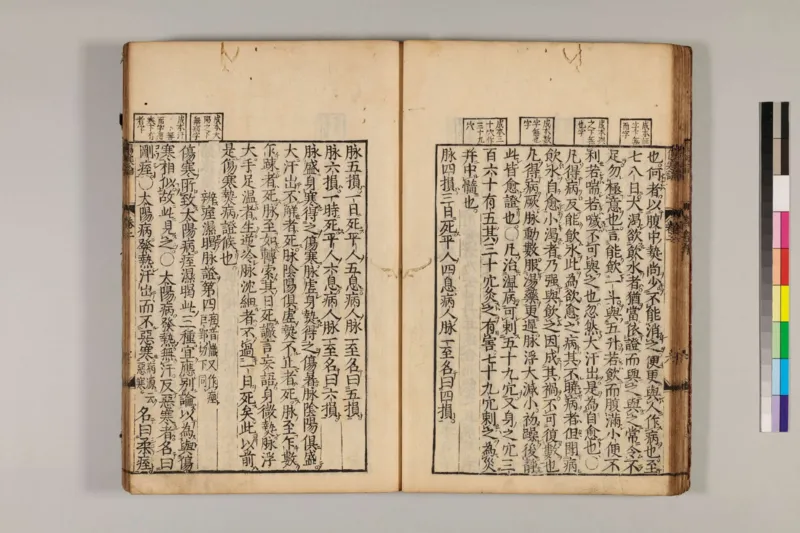 也何者以腹中熱尚少不能消之便更與人作病也至
七八日大渴欲飲水者猶當依證而與之與之常令不
足勿極意也言能飲一斗與五升若飲而腹滿小便不
利若喘若噦不可與之也忽然大汗出是為自愈也○
凡得病反能飲水此為欲愈之病其不曉病者但聞病
飲水自愈小渴者乃強與飲之因成其禍不可復數也○
凡得病厥脉動數服湯藥更遲脉浮大減小初躁後靜
此皆愈證也○凡治溫病可刺五十九穴又身之穴三
百六十有五其三十穴灸之有害七十九穴刺之為災
并中髓也
脉四損三日死平人四息病人脉一至名曰四損
脉五損一日死平人五息病人脉一至名曰五損
脉六損一時死平人六息病人脉一至名曰六損
脉盛身寒得之傷寒脉虛身熱得之傷暑脉陰陽俱盛
大汗出不解者死脉陰陽俱虛熱不止者死脉至乍數
乍疎者死脉至如轉索其日死讝言妄語身微熱脉浮
大手足溫者生逆冷脉沈細者不過一日死矣此以前
是傷寒熱病證候也
辨痓濕暍脉證第四
傷寒所致太陽病痓濕暍此三種宜應別論以為與傷
寒相似故此見之○太陽病發熱無汗反惡寒者名曰
剛痓○太陽病發熱汗出而不惡寒名曰柔痓